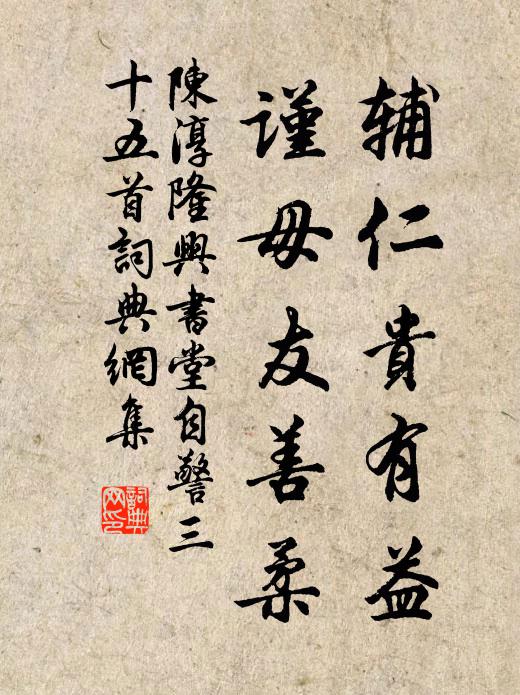 辅仁貴有益
謹毋友善柔
陳淳隆興書堂自警三
十五首詞典網集
詞典网印